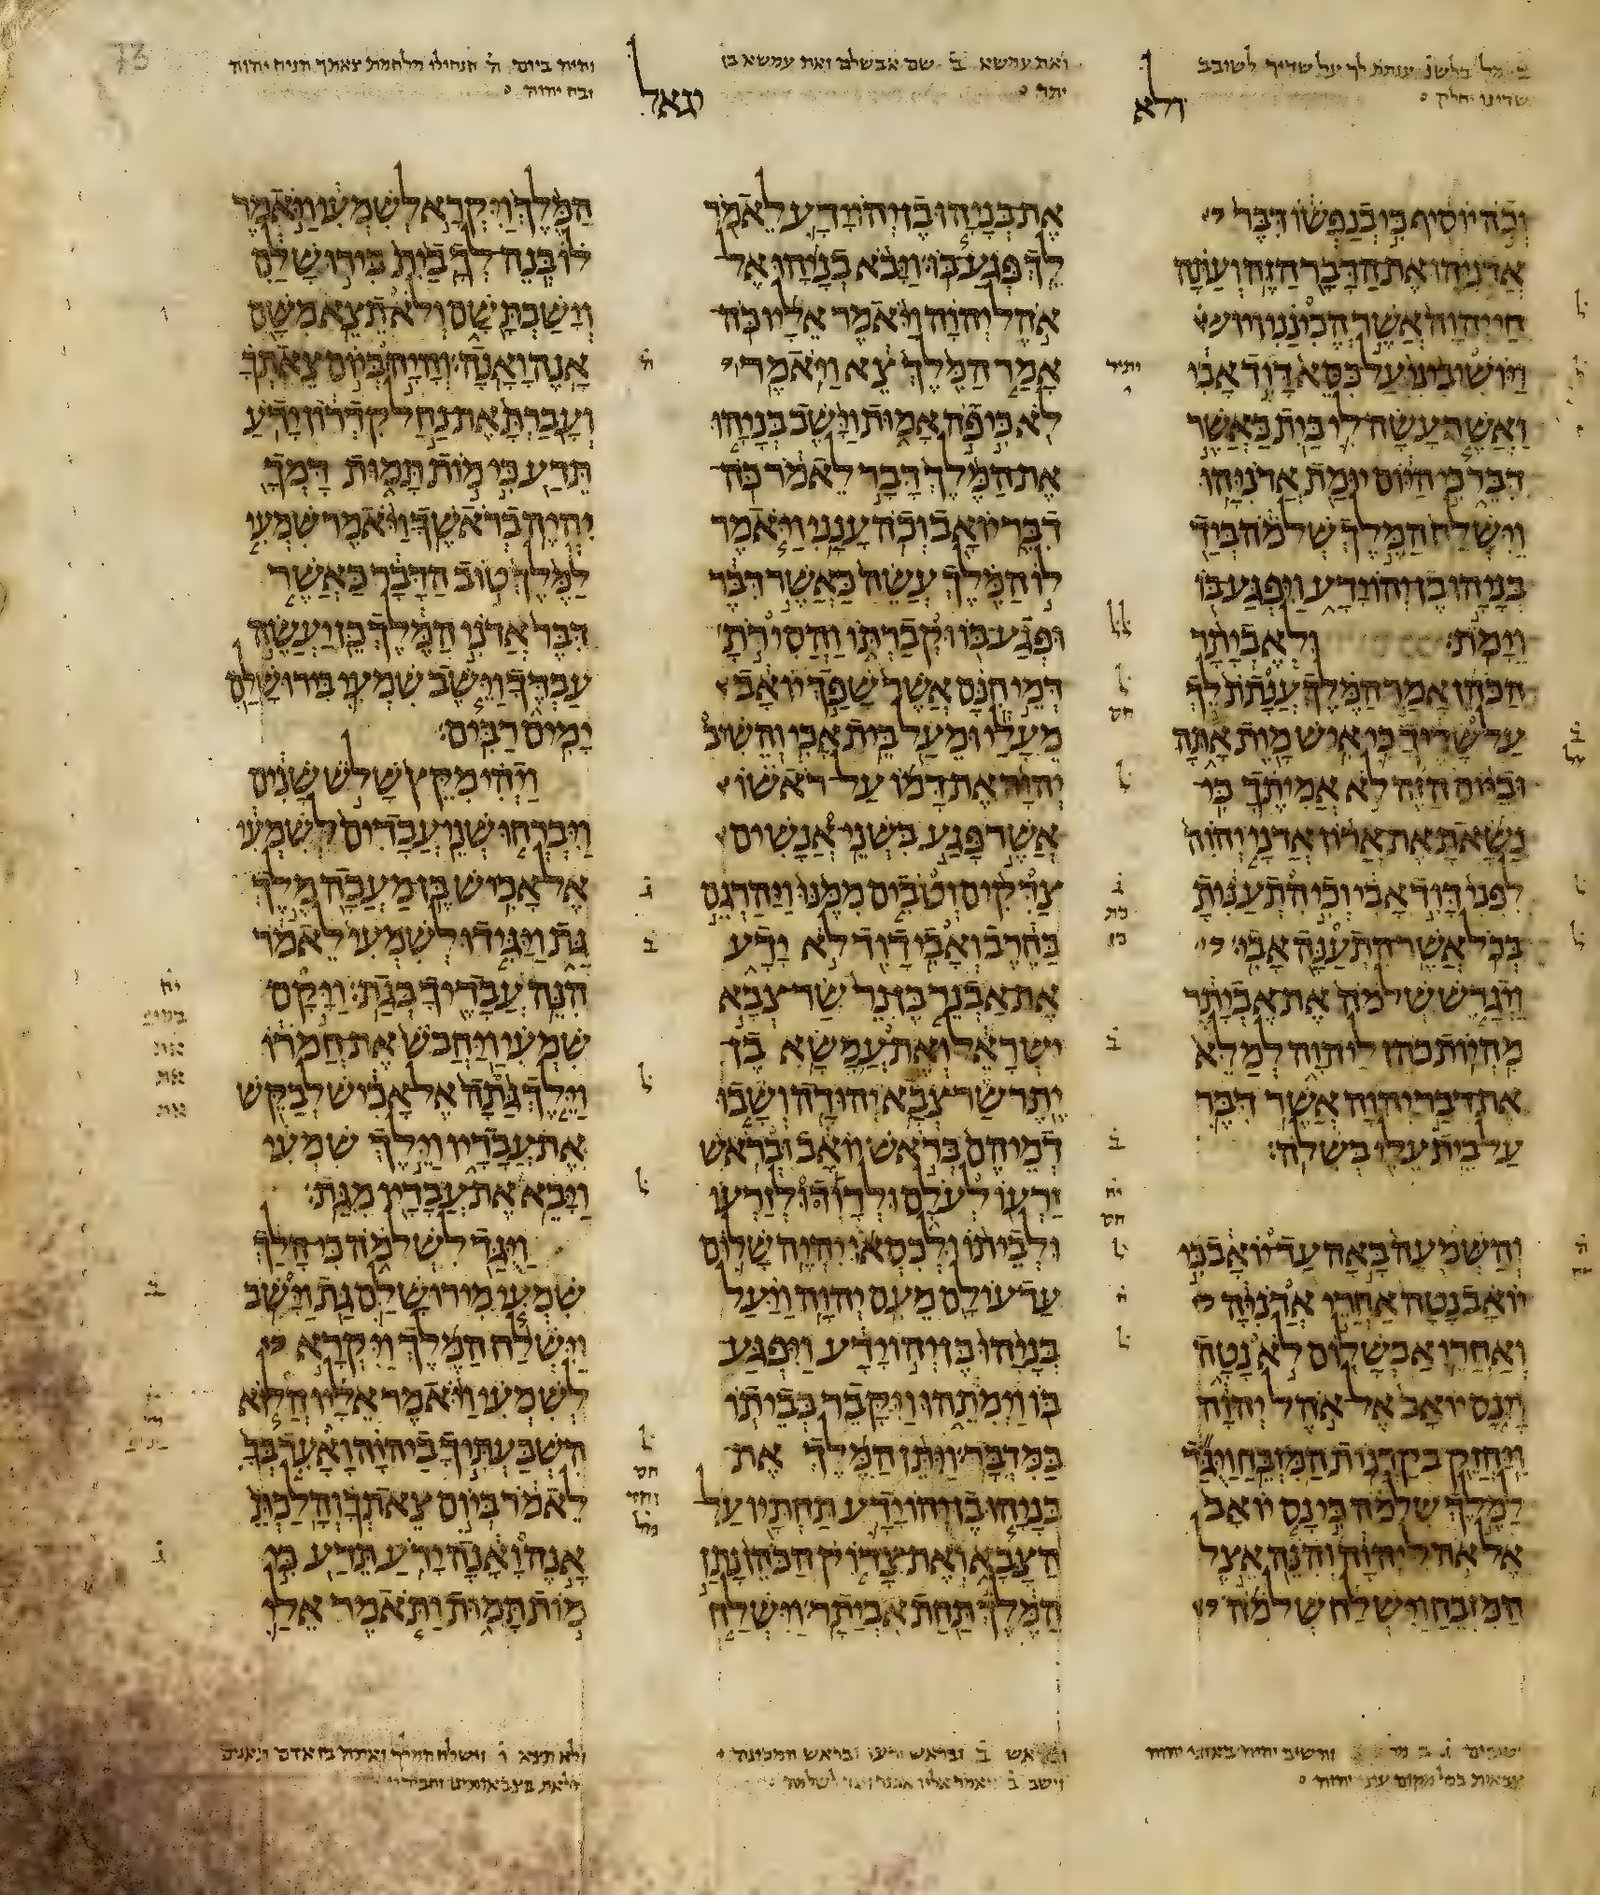 ב מל בלשנ ענתת לך על שדיך לשובב
שדינו יחלק
ולא
ואת עמשא ב שם אבשלם ואת עמשא בן
יתר
יגאל
והיה ביום ה הניח יהוה
זבח יהוה
73
וכה יוסיף כי בנפשו דבר
אדניהו את הדבר הזה ועתה
חי יהוה אשר הכינני ויוש
ויושיביני על כסא דויד אבי
ואשר עשה לי בית כאשר
דבר כי היום יומת אדניהו
וישלח המלך שלמה ביד
בניהו בן יהוידע ויפגע בו
וימת ולאביתר
הכהן אמר המלך ענתת לך
על שדיך כי איש מות אתה
וביום הזה לא אמיתך כי
נשאת את ארון אדני יהוה
לפני דוד אבי וכי התענית
בכל אשר התענה אבי
ויגרש שלמה את אביתר
מהיות כהן ליהוה למלא
את דבר יהוה אשר דבר
על בית עלי בשלה
והשמעה באה עד יואב כי
יואב נטה אחרי אדניה
ואחרי אבשלום לא נטה
וינס יואב אל אהל יהוה
ויחזק בקרנות המזבח ויגד
למלך שלמה כי נס יואב
אל אהל יהוה והנה אצל
המזבח וישלח שלמה
את בניהו בן יהוידע לאמר
לך פגע בו ויבא בניהו אל
אהל יהוה ויאמר אליו כה
אמר המלך צא ויאמר
לא כי פה אמות וישב בניהו
את המלך דבר לאמר כה
דבר יואב וכה ענני ויאמר
לו המלך עשה כאשר דבר
ופגע בו וקברתו והסירת
דמי חנם אשר שפך יואב
מעלי ומעל בית אבי והשיב
יהוה את דמו על ראשו
אשר פגע בשני אנשים
צדקים וטבים ממנו ויהרגם
בחרב ואבי דוד לא ידע
את אבנר בן נר שר צבא
ישראל ואת עמשא בן
יתר שר צבא יהודה ושבו
דמיהם בראש יואב ובראש
זרעו לעלם ולדוד ולזרעו
ולביתו ולכסאו יהיה שלום
עד עולם מעם יהוה ויעל
בניהו בן יהוידע ויפגע
בו וימתהו ויקבר בביתו
במדבר ויתן המלך את
בניהו בן יהוידע תחתיו על
הצבא ואת צדוק הכהן נתן
המלך תחת אביתר וישלח
המלך ויקרא לשמעי ויאמר
לו בנה לך בית בירושלם
וישבת שם ולא תצא משם
אנה ואנה והיה ביום צאתך
ועברת את נחל קדרון ידע
תדע כי מות תמות דמך
יהיה בראשך ויאמר שמעי
למלך טוב הדבר כאשר
דבר אדני המלך כן יעשה
עבדך וישב שמעי בירושלם
ימים רבים
ויהי מקץ שלש שנים
ויברחו שני עבדים לשמעי
אל אכיש בן מעכה מלך
גת ויגידו לשמעי לאמר
הנה עבדיך בגת ויקם
שמעי ויחבש את חמרו
וילך גתה אל אכיש לבקש
את עבדיו וילך שמעי
ויבא את עבדיו מגת
ויגד לשלמה כי הלך
שמעי מירושלם גת וישב
וישלח המלך ויקרא
לשמעי ויאמר אליו הלוא
השבעתיך ביהוה ואעד בך
לאמר ביום צאתך והלכת
אנה ואנה ידע תדע כי
מות תמות ותאמר אלי
והשיב יהוה
צבאות בכל מקום עיני יהוה
ובראש זרעו ובראש
וישב ב ויאמר אליו אבנר
ולא תצא וישלח המלך